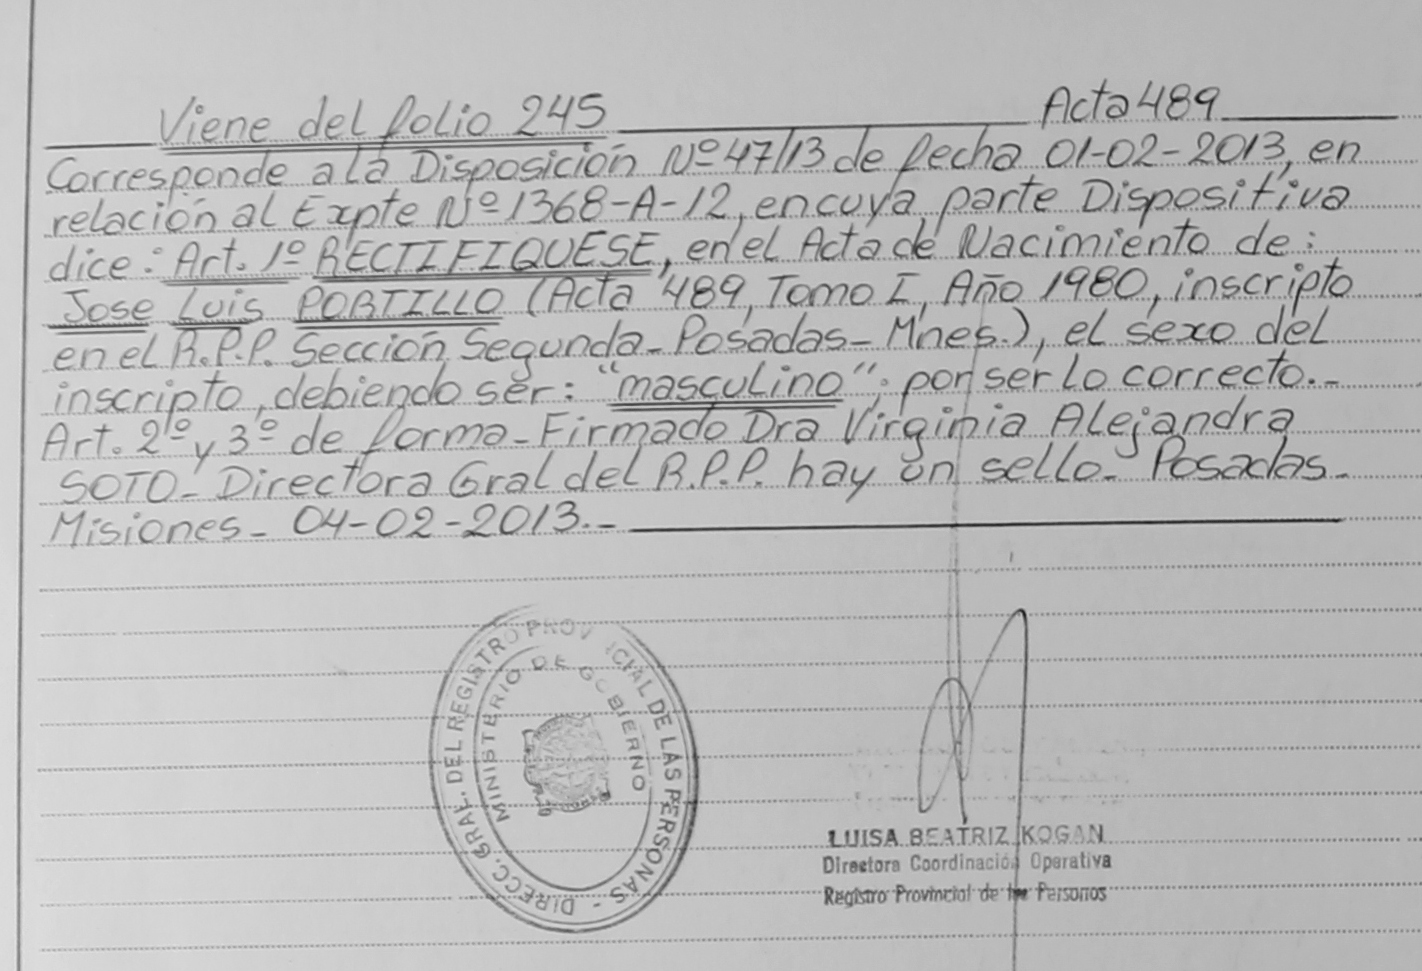 Viene del folio 245 Acta 489
Corresponde a la Disposición Nº 47/13 de fecha 01-02-2013, en
relación al Expte Nº 1368-A-12, en cuya parte Dispositiva
dice: Art. 1º RECTIFIQUESE, en el Acta de Nacimiento de:
Jose Luis PORTILLO (Acta 489, Tomo I, Año 1980, inscripto
en el R.P.P. Sección Segunda - Posadas - Mnes.), el sexo del
inscripto, debiendo ser: "masculino". por ser lo correcto.-
Art. 2º y 3º de forma - Firmado Dra Virginia Alejandra
SOTO - Directora Gral del R.P.P. hay un sello - Posadas -
Misiones - 04-02-2013.-
DIRECC. GRAL. DEL REGISTRO PROVINCIAL DE LAS PERSONAS -
MINISTERIO DE GOBIERNO
LUISA BEATRIZ KOGAN
Directora Coordinación Operativa
Registro Provincial de las Personas